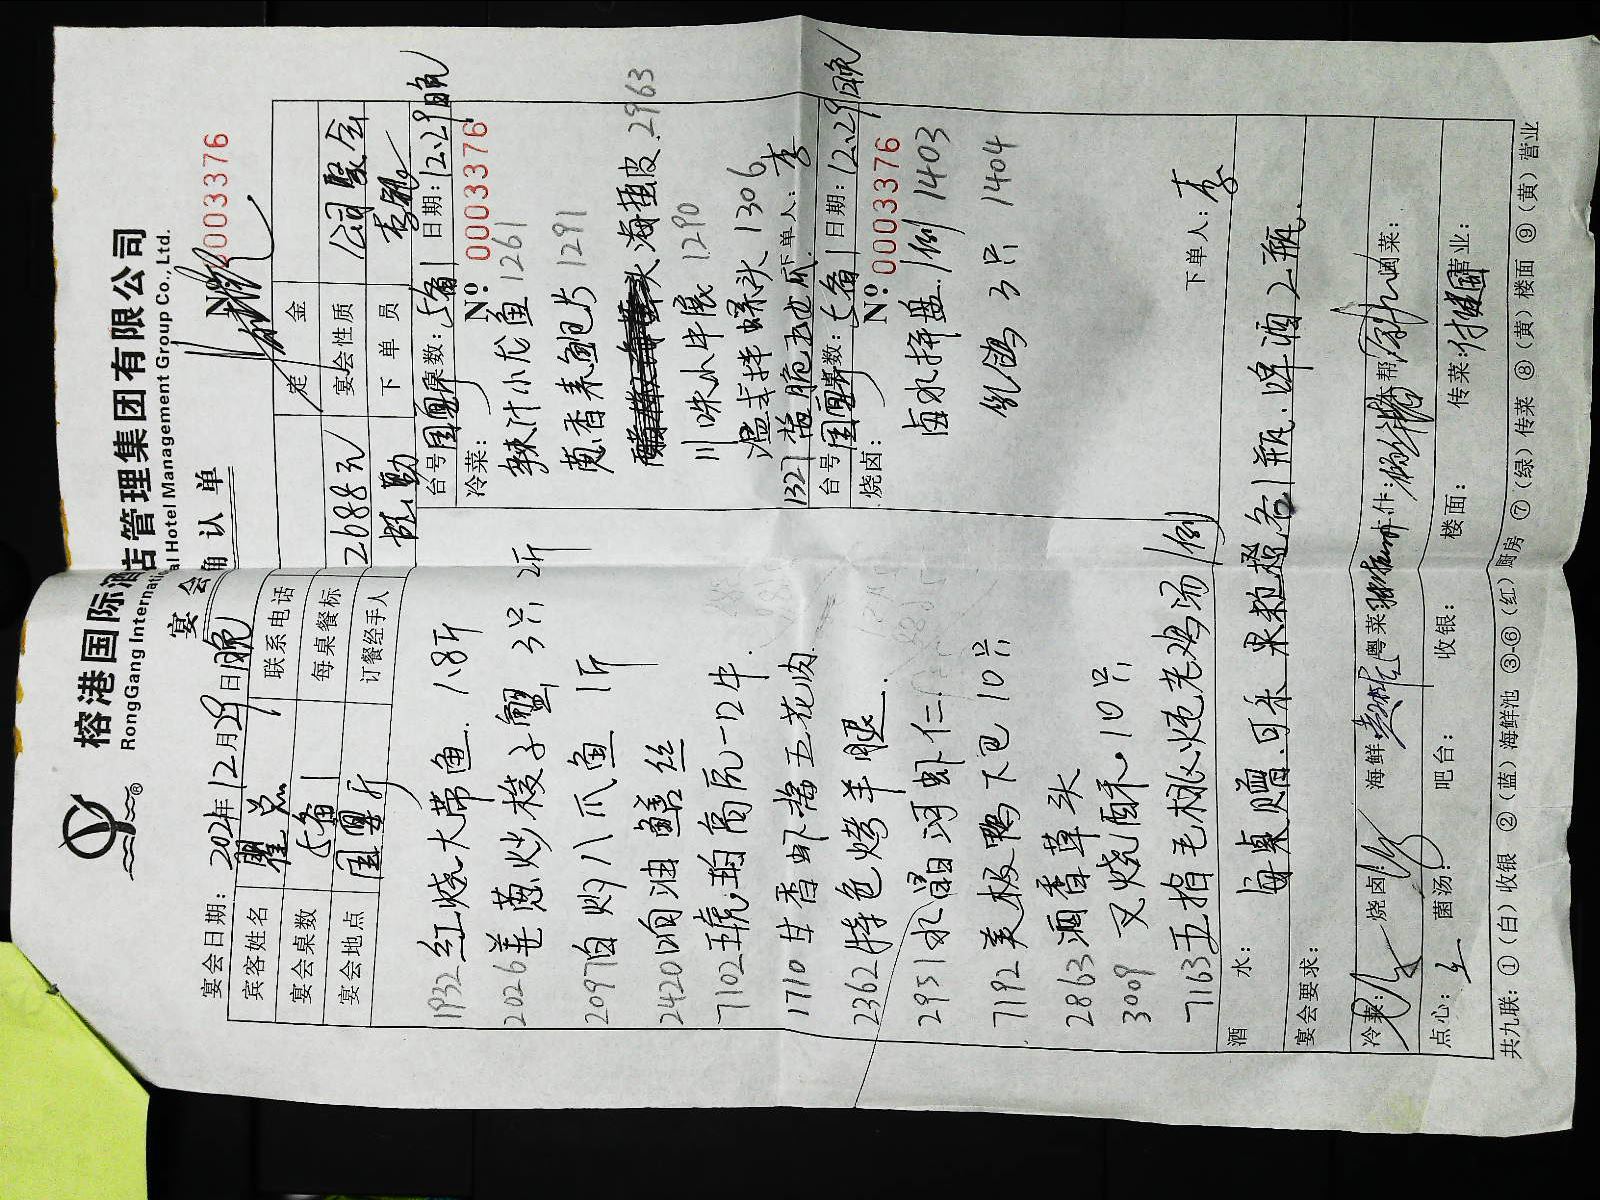 榕港国际酒店管理集团有限公司
RongGang International Hotel Management Group Co., Ltd.
宴会确认单
No 0003376
宴会日期: 2024年12月29日晚
宾客姓名 瞿总 联系电话 定金
宴会桌数 1 每桌餐标 2688元 宴会性质 公司聚会
宴会地点 国宴厅 订餐经手人 下单员
1932 红烧大带鱼. 1.8斤
2026 姜葱炒梭子蟹 3只 2斤
2097 白灼八爪鱼 1斤
2420 响油鳝丝
7102
1710 甘香虾酱五花肉
2362 特色烤羊腿.
2951 水晶河虾仁
7192 美极鸭下巴 10只
2863 酒香草头
3009 叉烧酥 10只
7163 五指毛桃炖老鸡汤 1例
台号 国宴厅 桌数: 1 日期: 12.29晚
冷菜: No 0003376
辣汁小龙鱼 1261
葱香素鲍片 1291
海蜇皮. 2963
川味水牛展 1290
温式拌螺头 1306
1327 下单人: 李
台号 国宴厅 桌数: 1 日期: 12.29晚
烧卤: No 0003376
卤水拼盘 1例 1403
乳鸽 3只 1404
下单人: 李
酒水: 每桌赠.可乐 果粒橙各1瓶.啤酒2瓶.
宴会要求:
冷菜: 烧卤: 海鲜 粤菜 本帮 闽菜:
点心: 菌汤: 吧台: 收银: 楼面: 传菜: 营业:
共九联: ①(白)收银 ②(蓝)海鲜池 ③-⑥(红)厨房 ⑦(绿)传菜 ⑧(黄)楼面 ⑨(黄)营业